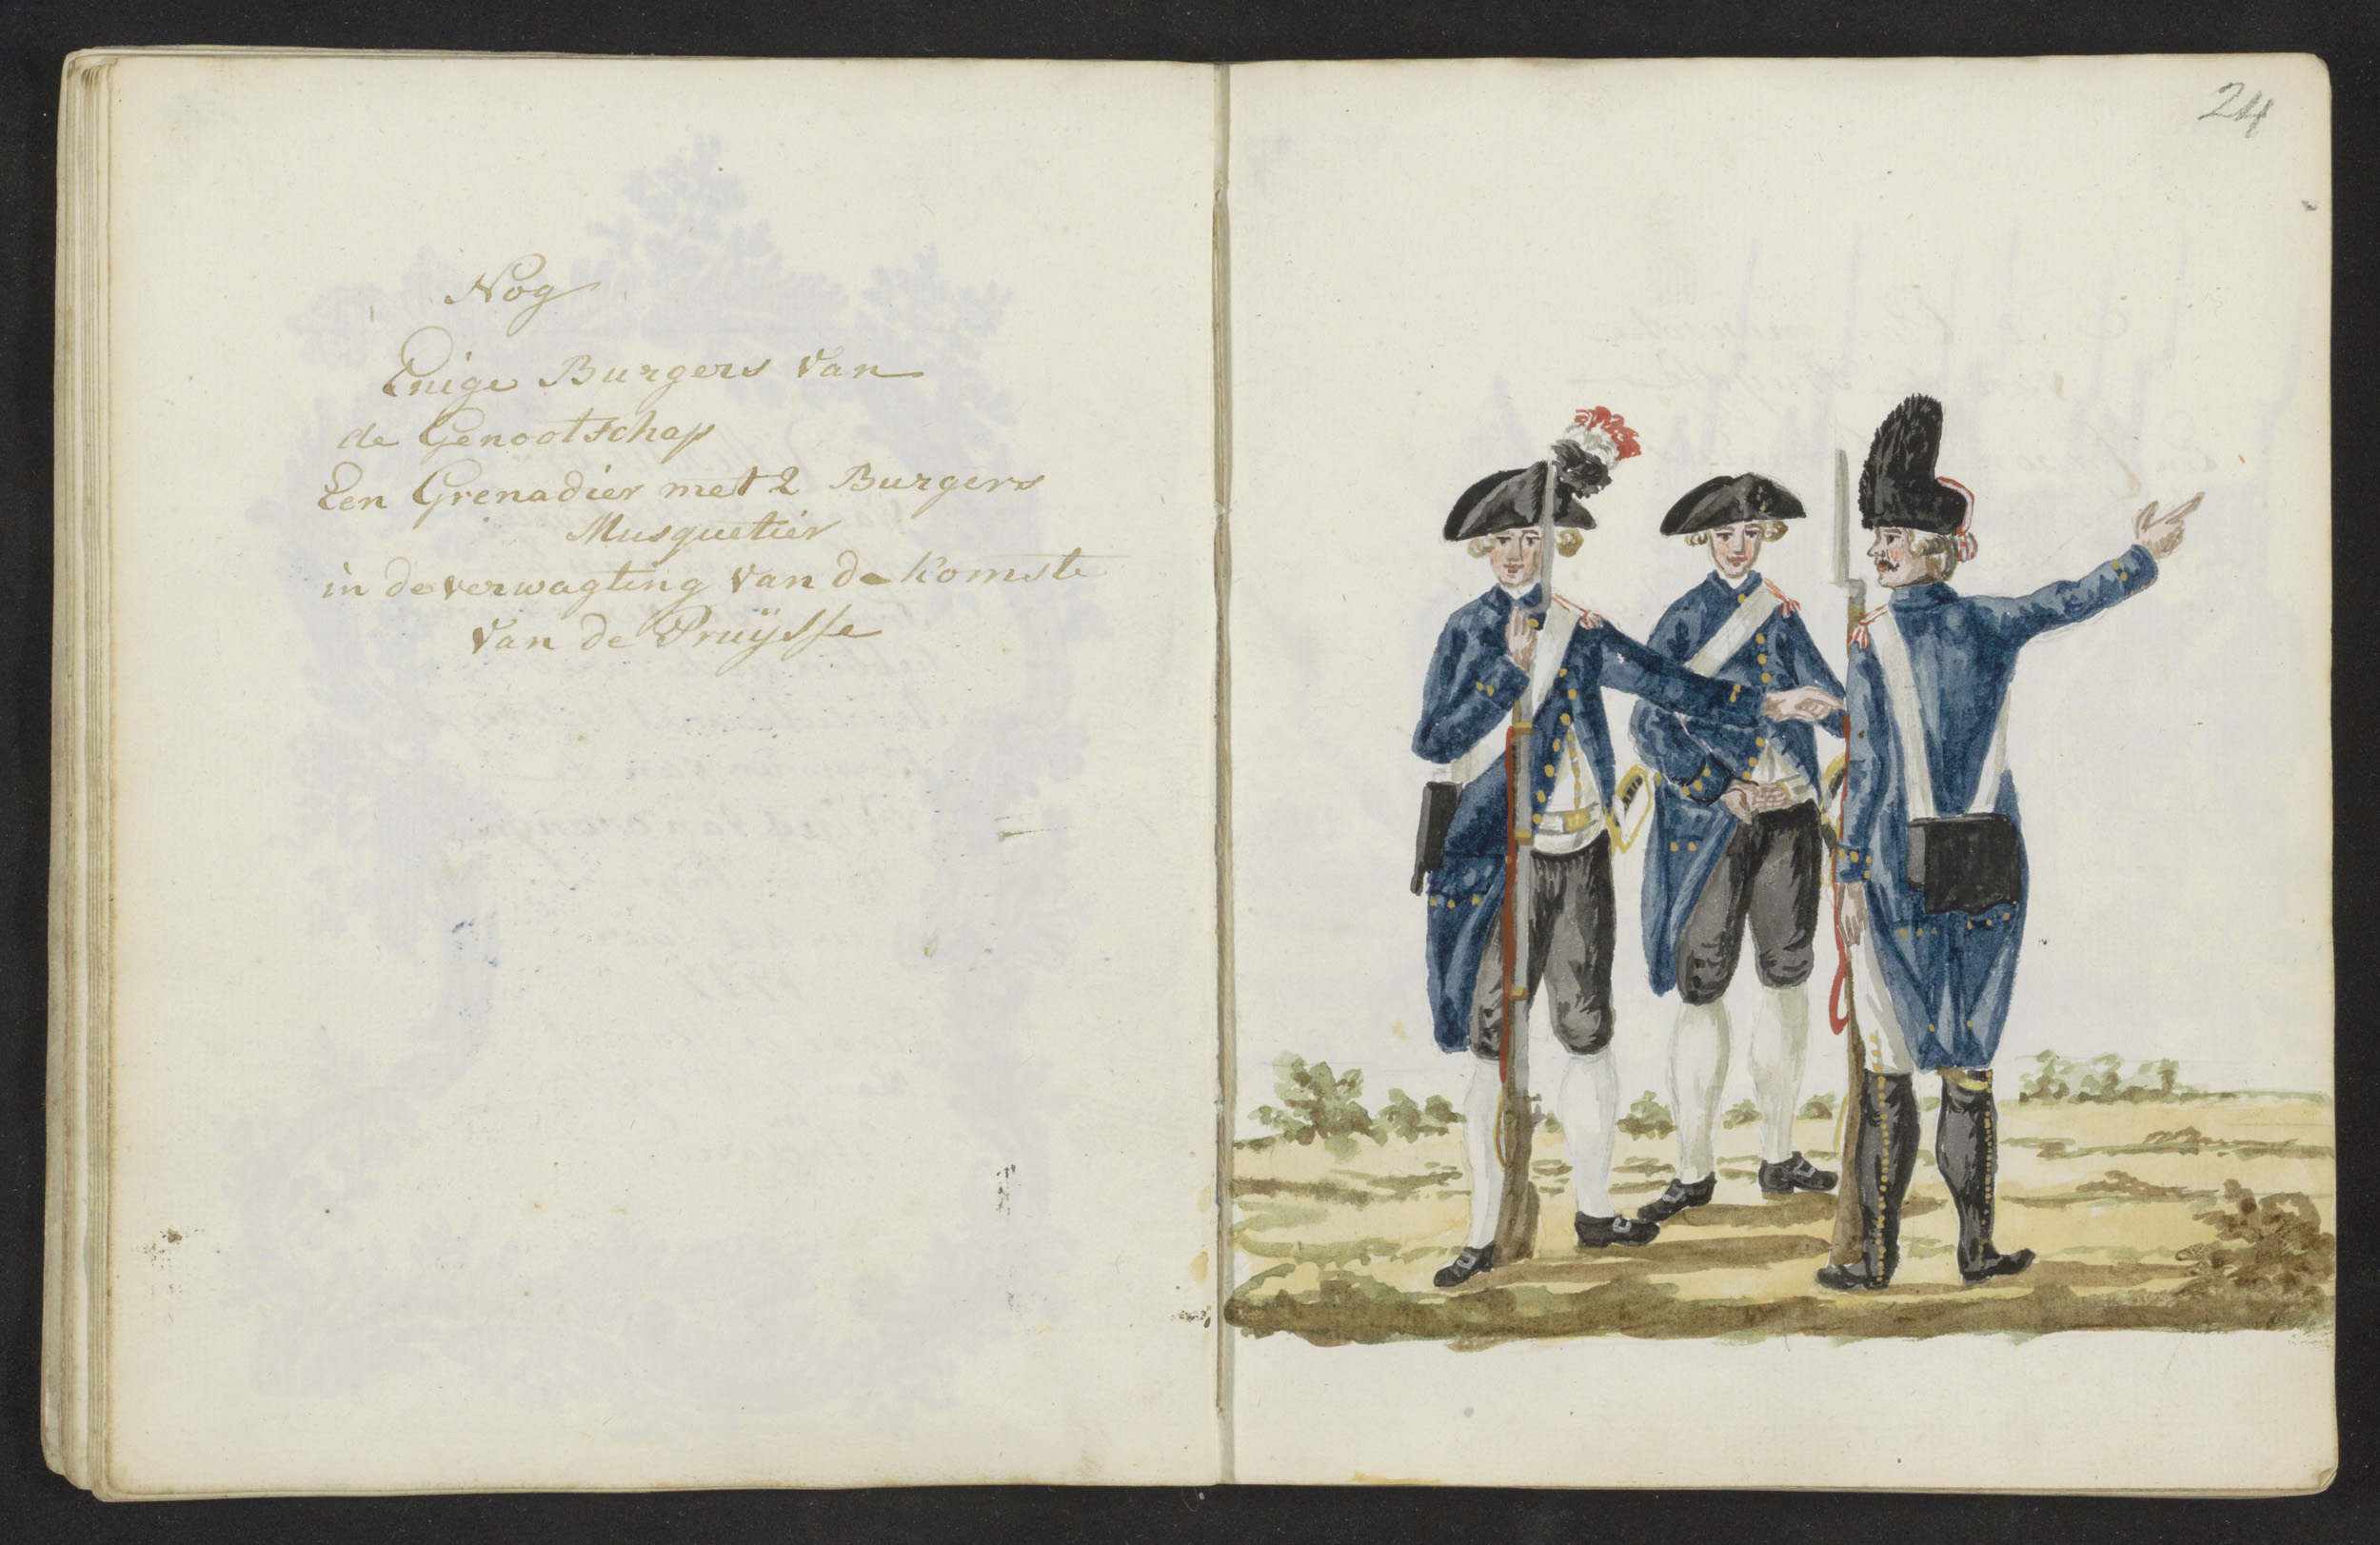 Nog
Enige Burgers van
de Genootschap
Een Grenadier met 2 Burgers
Musquetier
in de verwagting van de komste
van de Pruÿsse
24